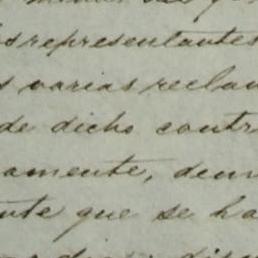 os representantes
s varias reclam
de dicho contr
amente, dem
nte que se ha